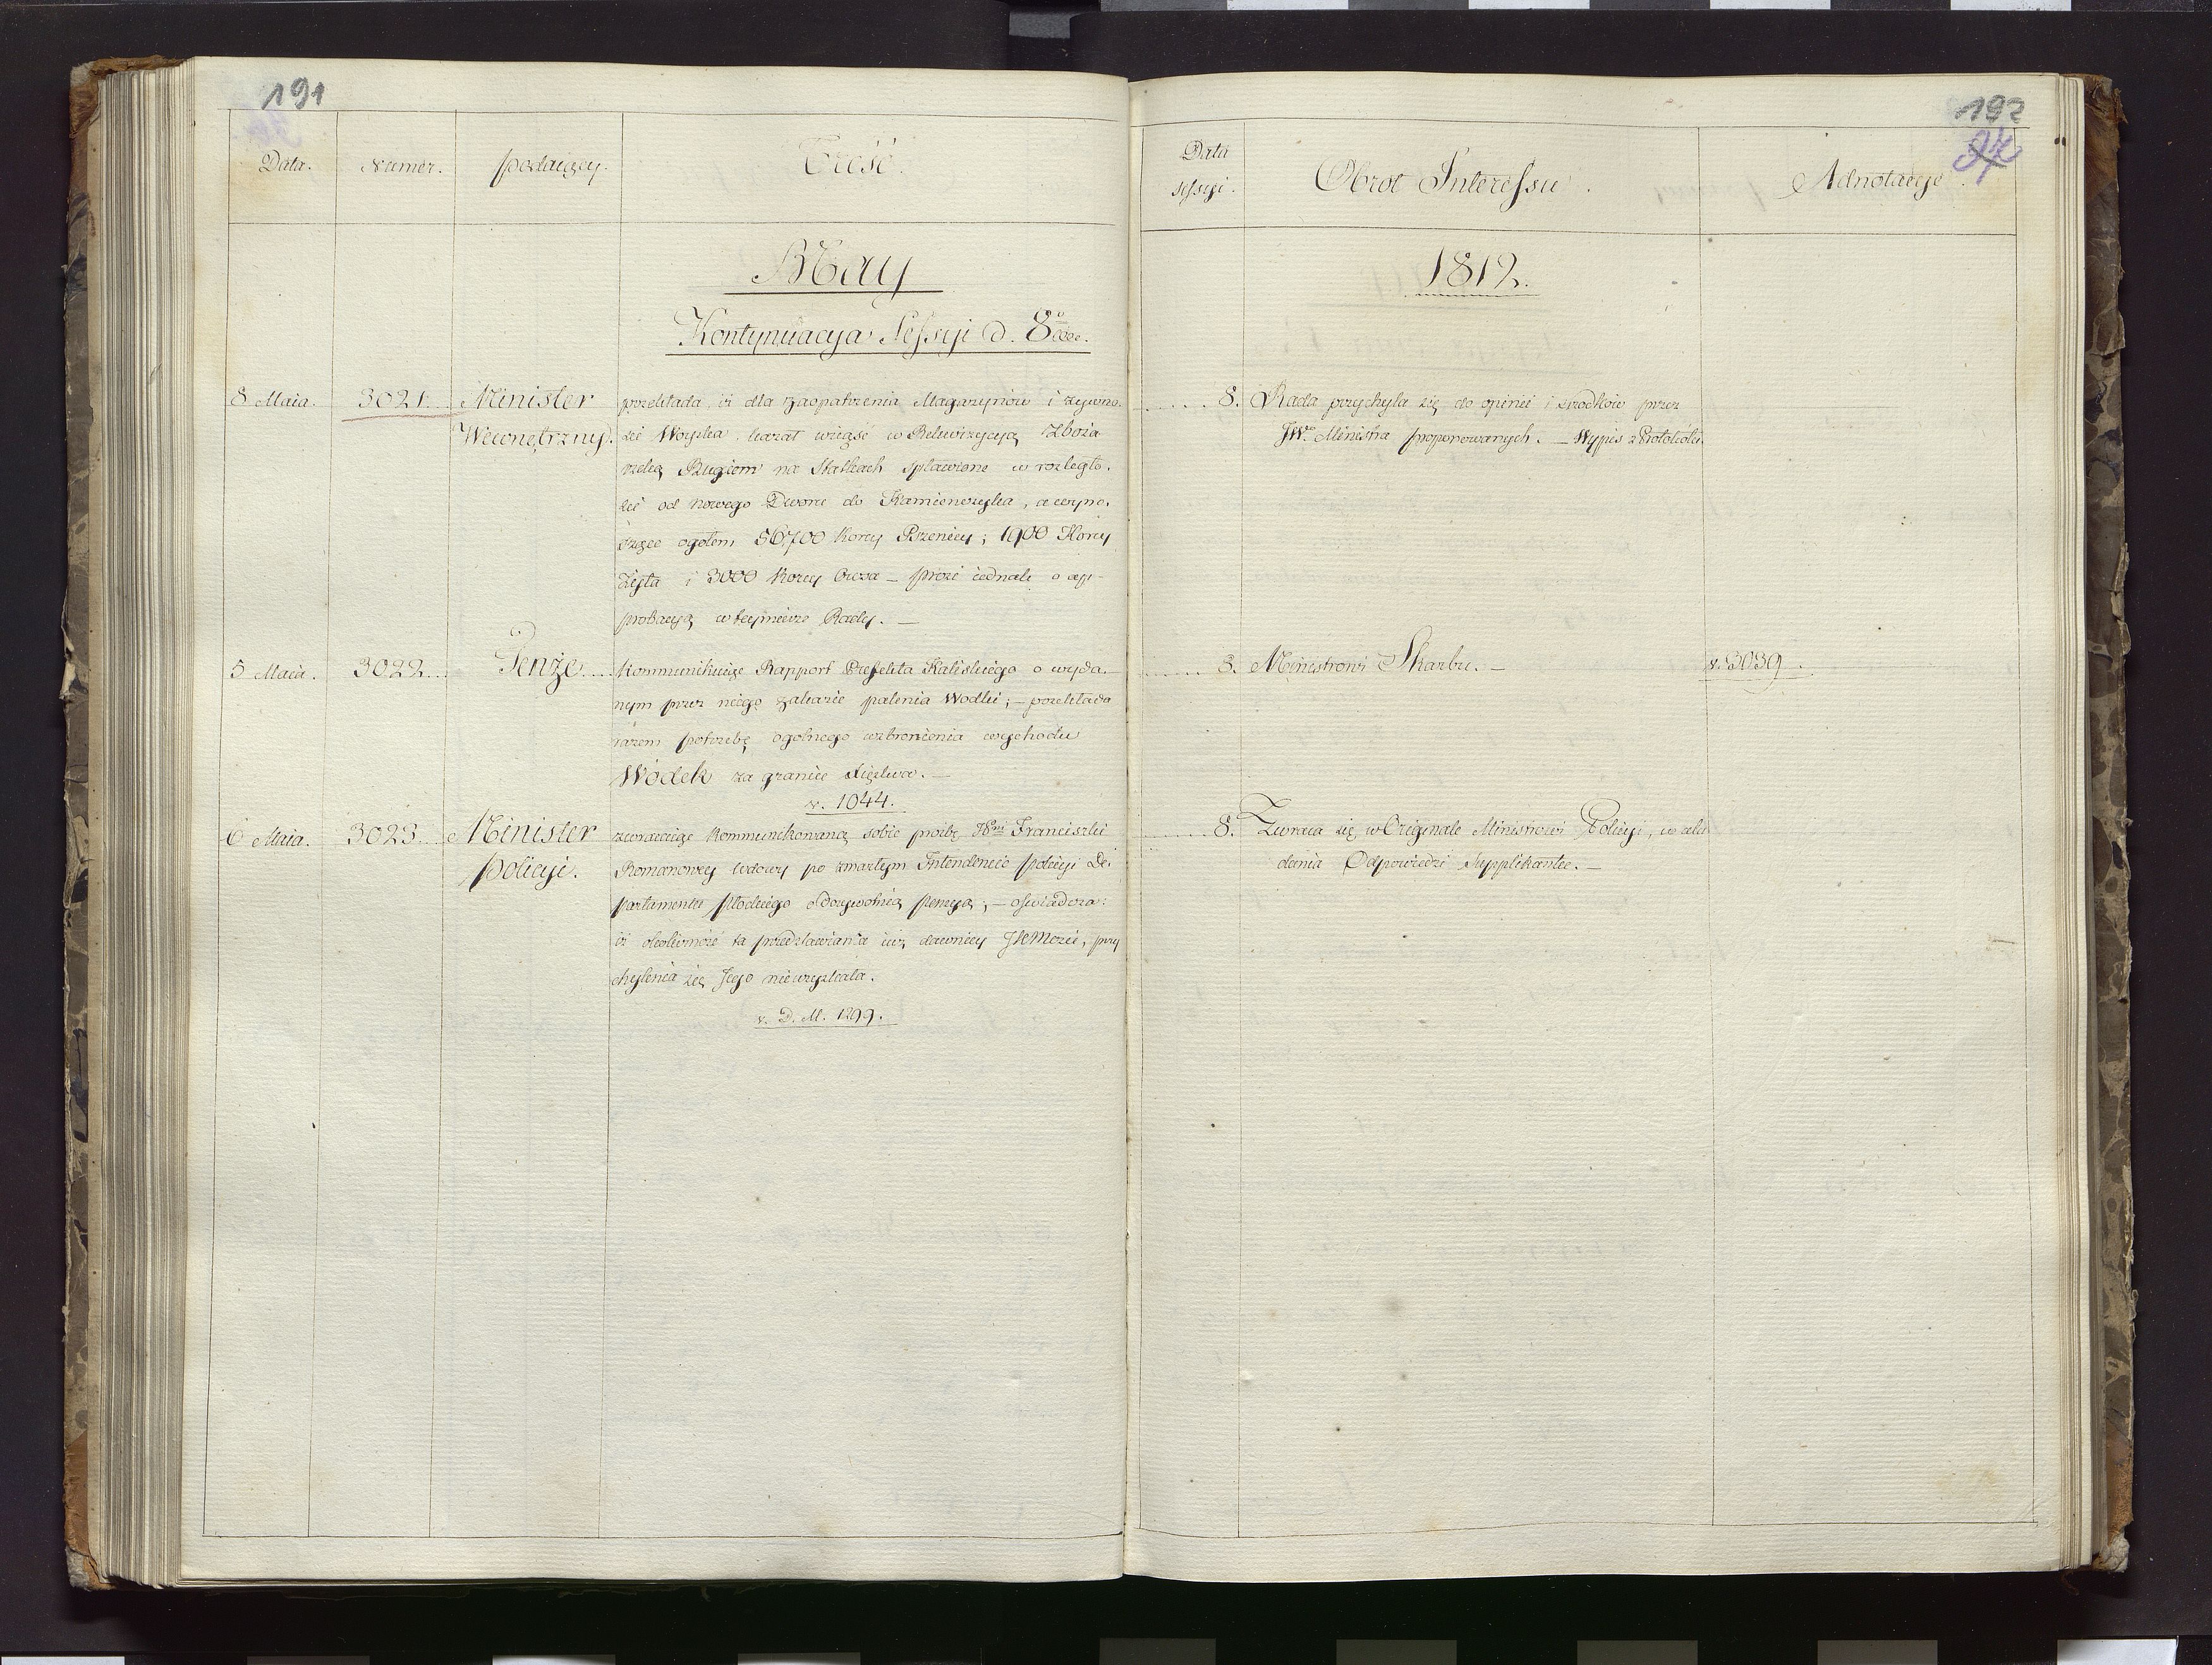 191
Data. Numer. podaiący. Treść.
May
Kontynuacya Sessyi d. 8
8 Maia. 3021. Minister Wewnętrzny.
przekłada iż dla zaopatrzenia Magazynów i żywno.
ści Woyska kazał wziąść w Rekwizycyą zboża
rzeką Bugiem na Statkach spławione w rozległo.
ści od nowego Dworu do Kamienczyka, a wyno.
szące ogołem 56700 korcy Pszenicy; 1900 Korcy
Żyta i 3000 korcy Owsa — prosi iednak o ap-
probacyą w teymierze Rady. —
5 Maia. 3022... Tenże....
kommunikuiąc Rapport Prefekta Kaliskiego o wyda.
nym przez niego zakazie palenia Wodki; — przekłada
razem potrzebę ogolnego wzbronienia wychodu
Wódek za granice Xięstwa. —
v. 1044.
6 Maia. 3023... Minister Policyi.
zwracaiąc kommunikowaną sobie proźbę Franciszki
Romanowey wdowy po zmarłym Intendencie policyi De.
partamentu Płockiego o dożywotnią pensyą; — oświadcza:
iż okoliczność ta przedstawiana iuż dawniey JKMości, przy
chylenia się Jego nieuzyskała.
v. D. M. 1299.
192
Data sessyi. Obrot Interessu. Adnotacye.
1812.
8. Rada przychyla się do opinii i srodków przez
JW. Ministra proponowanych. — Wypis z Protokółu
8. Ministrowi Skarbu. — v. 3039.
8. Zwraca się w Originale Ministrowi Policyi, w celu
dania Odpowiedzi Supplikantce. —